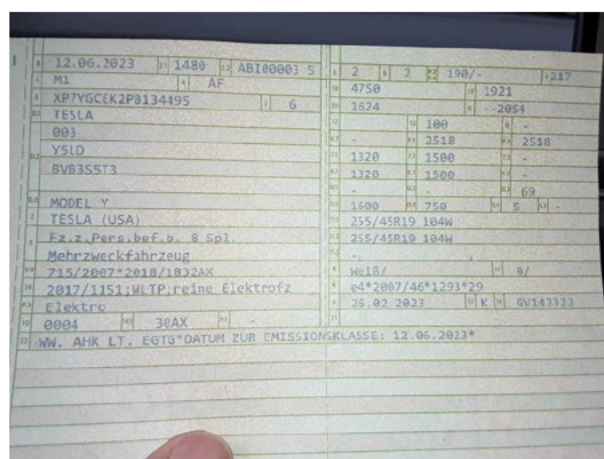 12.06.2023 1480 ABI00003 5
M1 AF
XP7YGCEK2PB134495 6
TESLA
003
Y5LD
BVB3S5T3
MODEL Y
TESLA (USA)
Fz.z.Pers.bef.b. 8 Spl.
Mehrzweckfahrzeug
715/2007*2018/1832AX
2017/1151;WLTP;reine Elektrofz
Elektro
0004 30AX -
NW. AHK LT. EGTG*DATUM ZUR EMISSIONSKLASSE: 12.06.2023*
2 2 190/- 217
4750 1921
1624 --2054
- 100 -
- 2518 2518
1320 1500 -
1320 1500 -
- - 69
1600 750 5 -
255/45R19 104W
255/45R19 104W
-
Weiß/ 0/
e4*2007/46*1293*29
26.02.2023 K GV143323